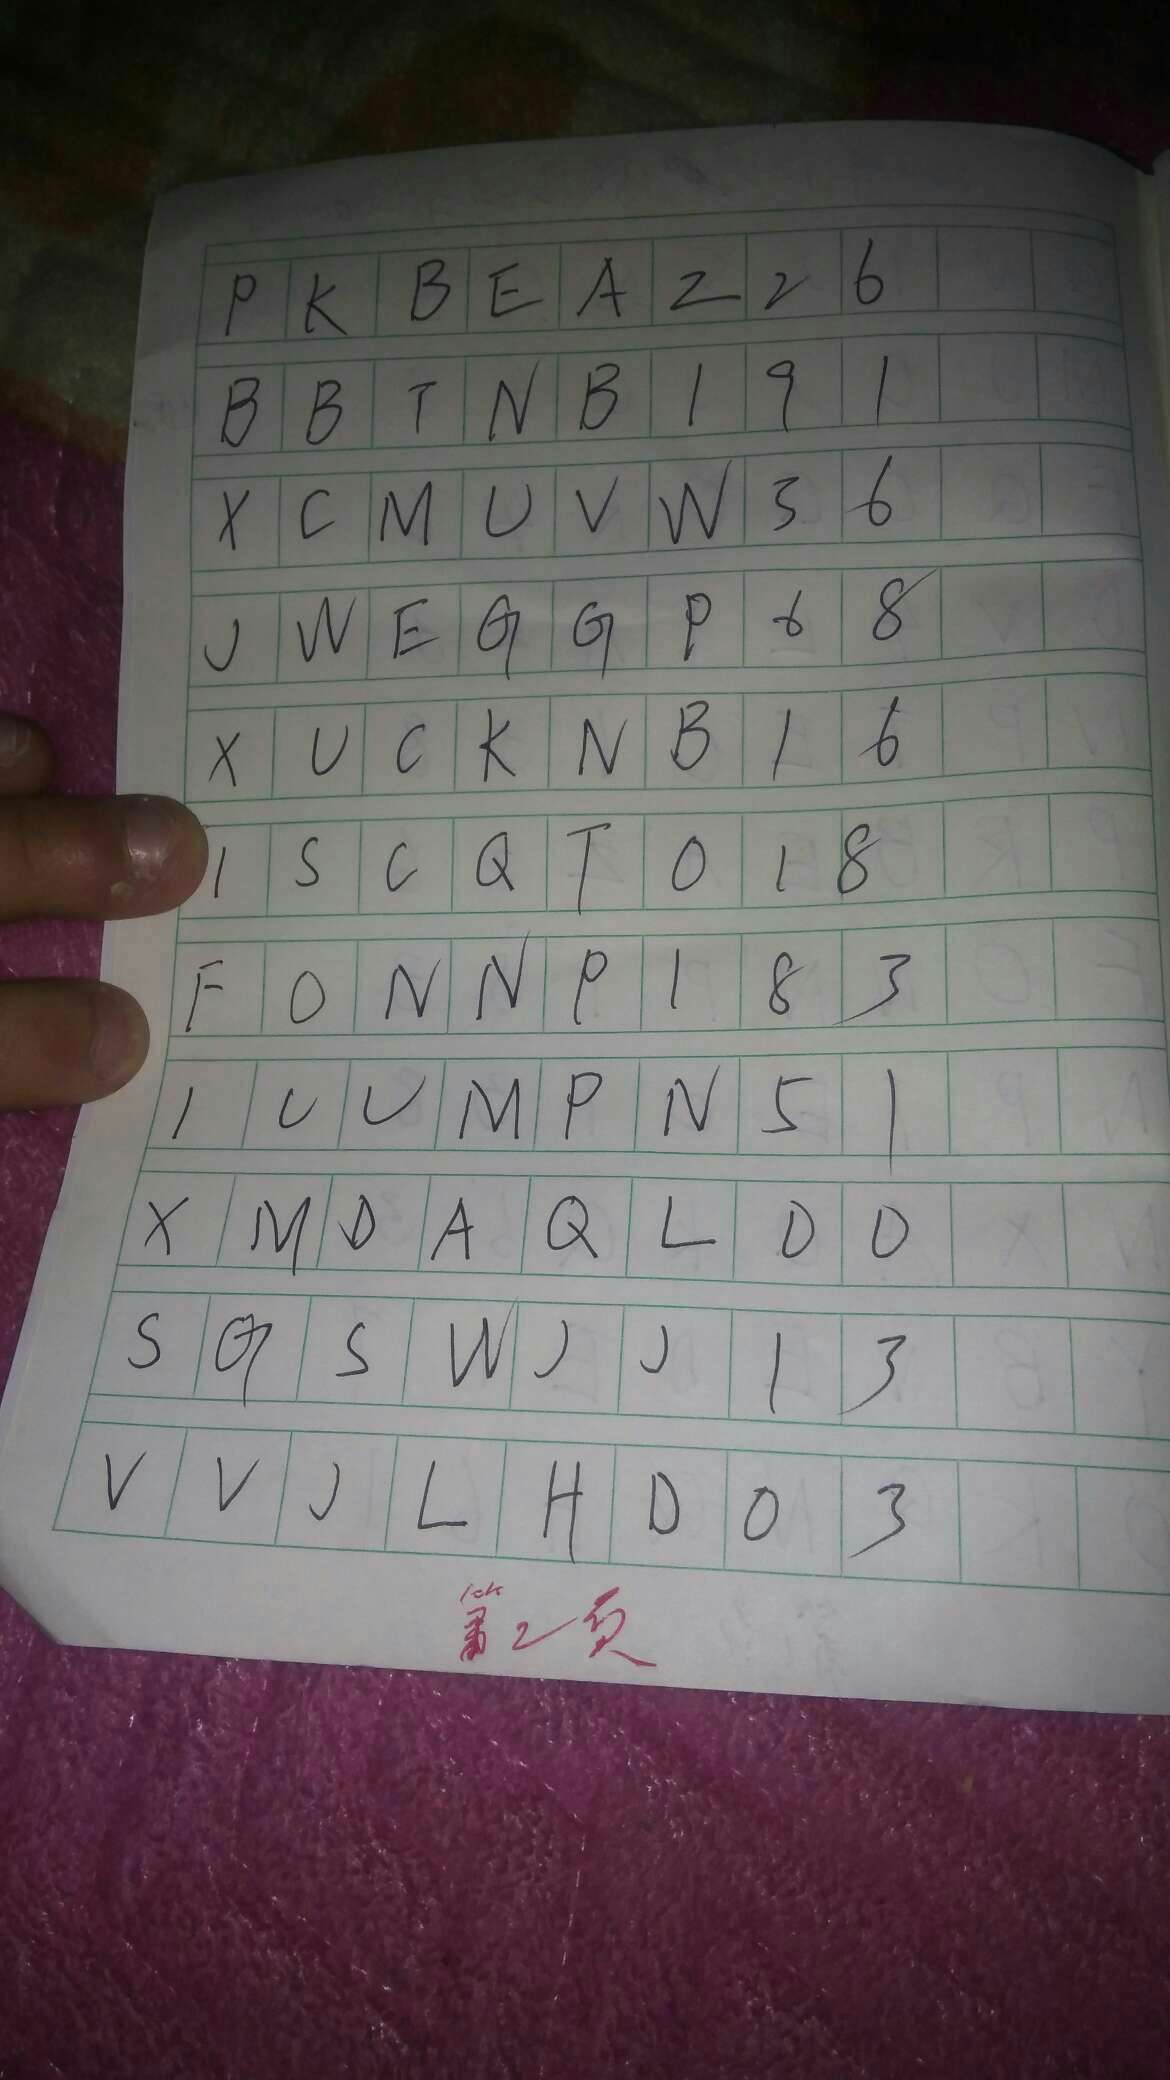 PKBEA226
BBTNB191
XCMUVW36
JWEGGP68
XUCKNB16
ISCQT018
FONNP183
IUUMPN51
XMDAQLD0
SGSWJJ13
VVJLHD03
第2页